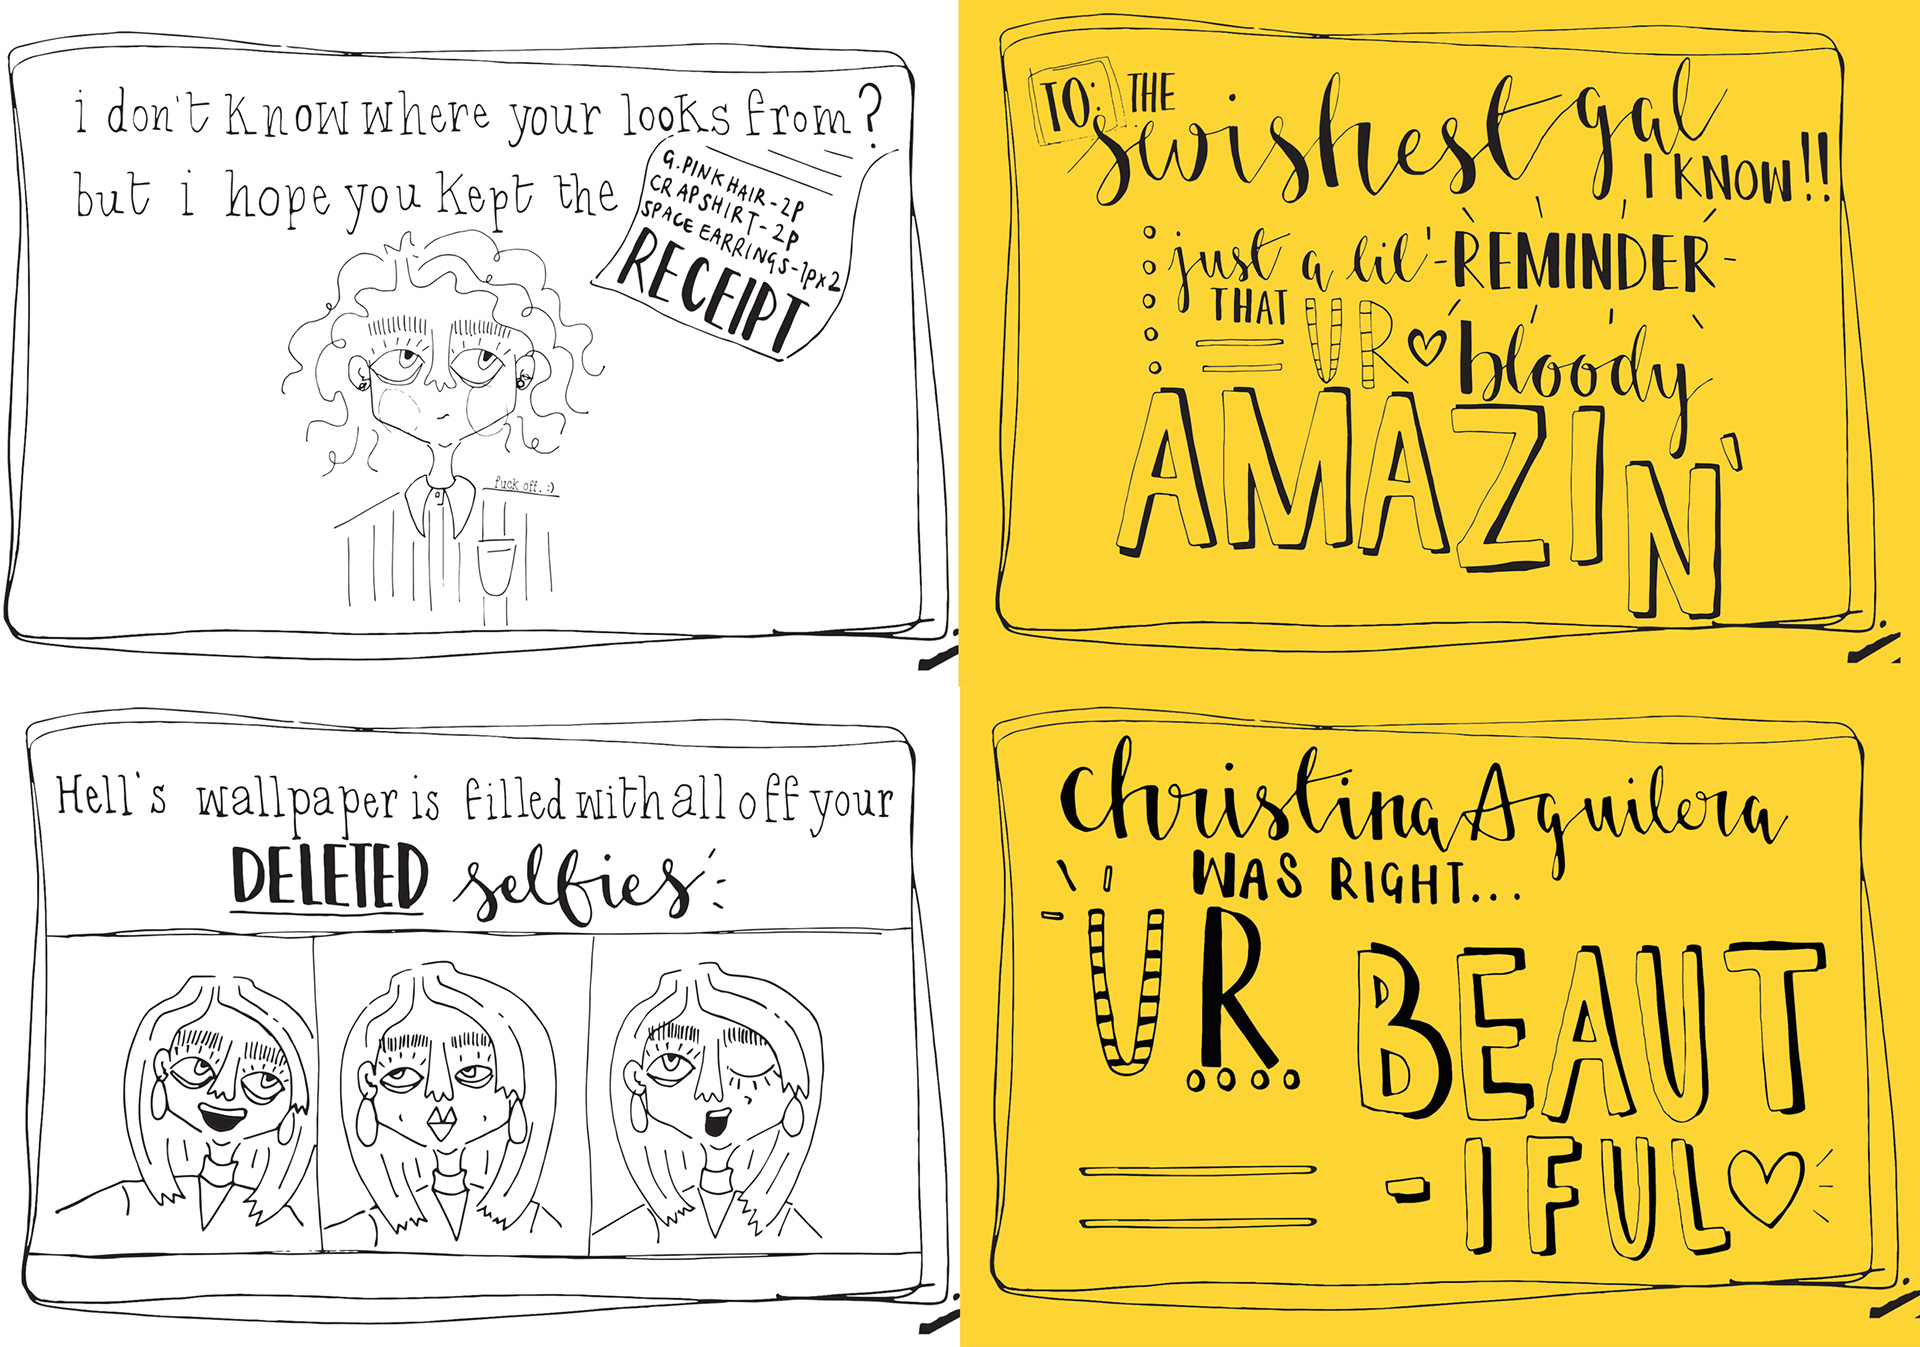 i don't know where your looks from?
but i hope you kept the
G. PINK HAIR - 2P
CRAP SHIRT - 2P
SPACE EARRINGS - 1p x 2
RECEIPT
fuck off. :)
TO: THE
swishest gal
I KNOW!!
just a lil' - REMINDER -
THAT UR bloody
AMAZIN'
Hell's wallpaper is filled with all off your
DELETED selfies
Christina Aguilera
WAS RIGHT...
UR BEAUT
-IFUL